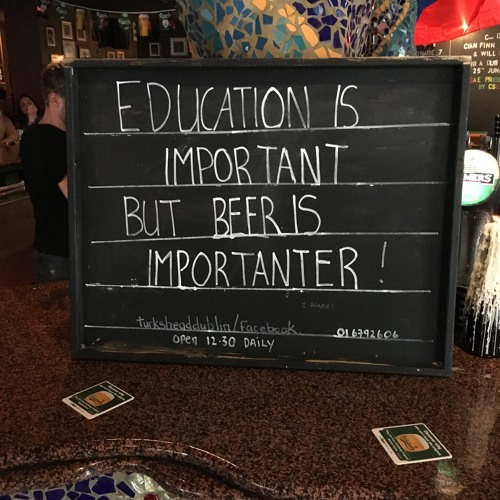 EDUCATION IS
IMPORTANT
BUT BEER IS
IMPORTANTER!
turksheaddublin/Facebook 016792606
OPEN 12-30 DAILY
CIAN FINN
& WILL